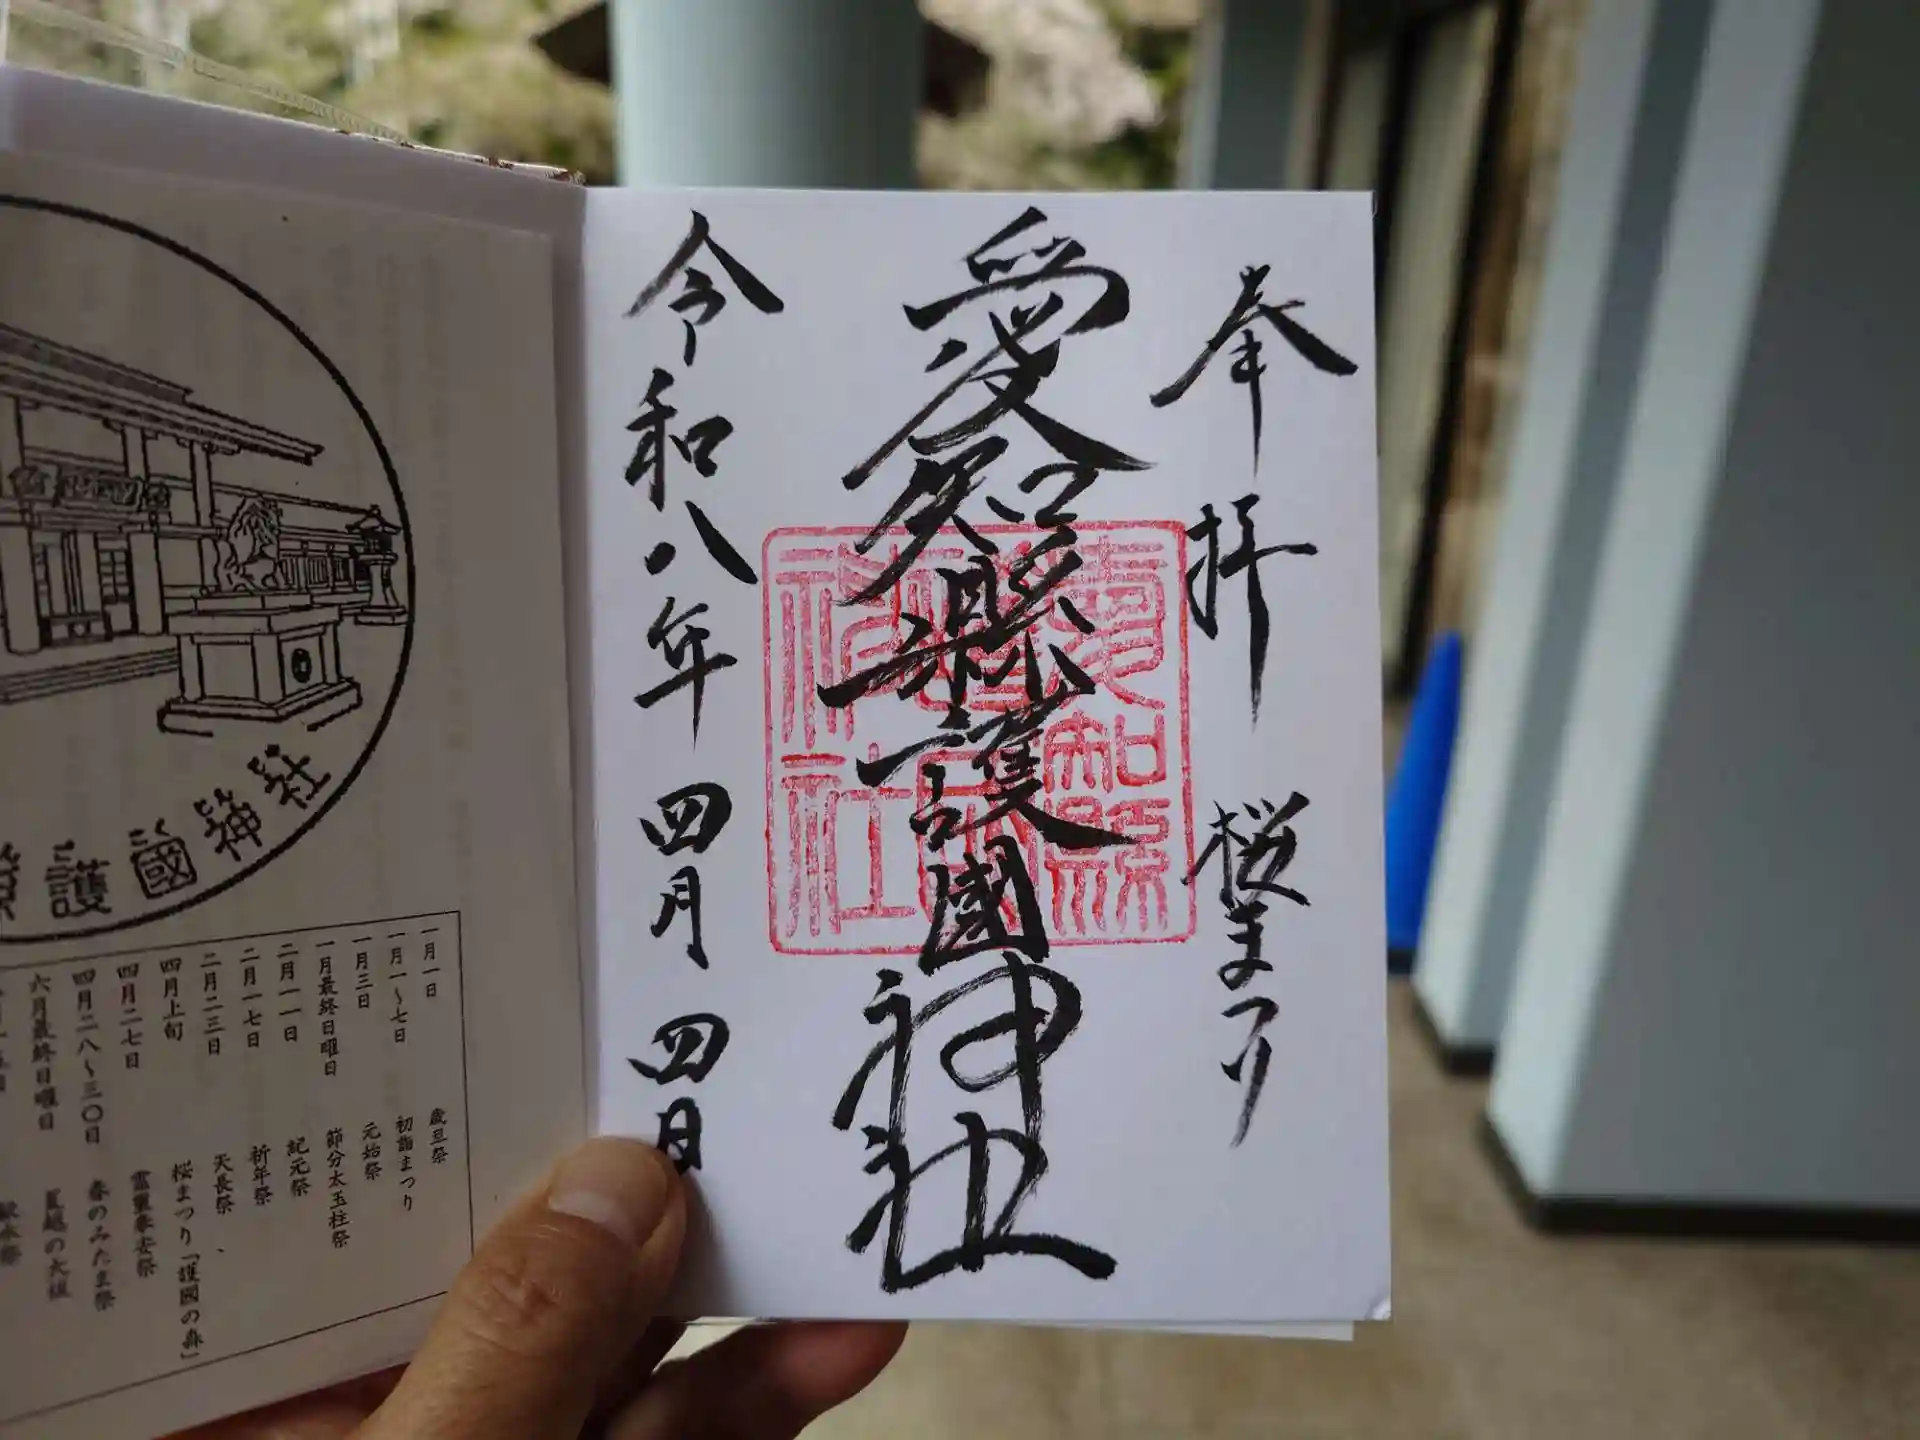 奉拝　桜まつり
愛知縣護國神社
令和八年四月四日
愛知縣
護國
神社
護國神社
一月一日　歳旦祭
一月一〜七日　初詣まつり
一月三日　元始祭
一月最終日曜日　節分大玉柱祭
二月一一日　紀元祭
二月一七日　祈年祭
二月二三日　天長祭
四月上旬　桜まつり「護國の森」
四月二七日　霊璽奉安祭
四月二八〜三〇日　春のみたま祭
六月最終日曜日　夏越の大祓
献水祭